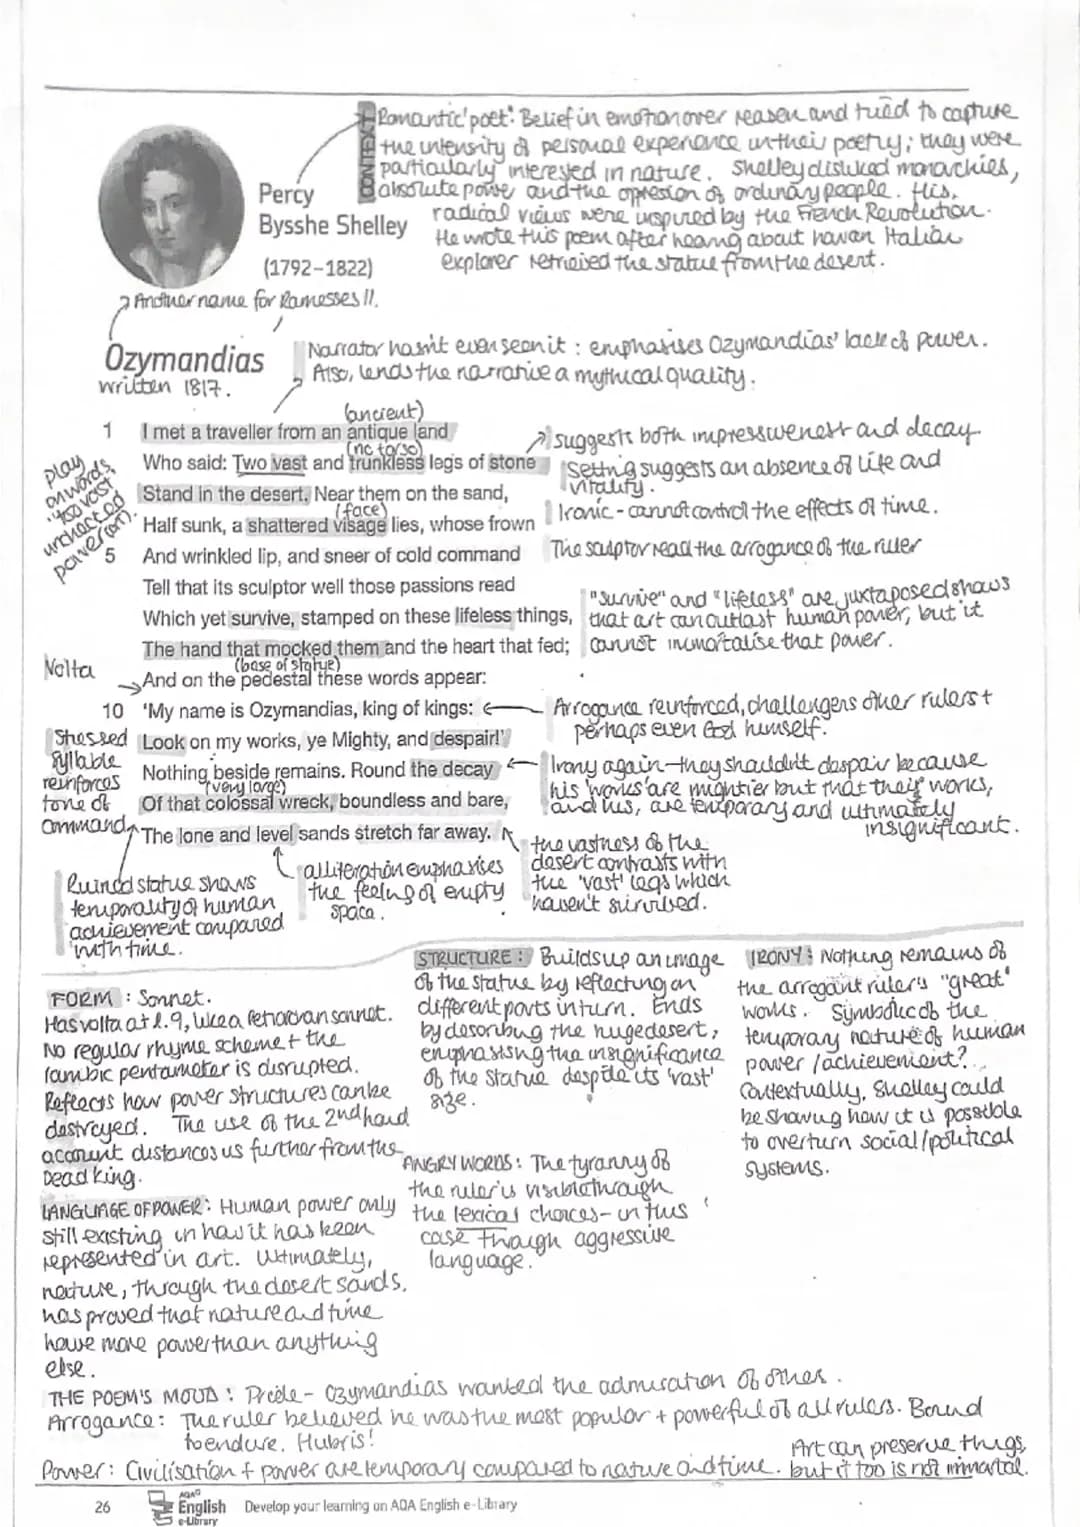 CONTEXT
'Romantic' poet: Belief in emotion over reason and tried to capture
the intensity of personal experience in their poetry; they were
particularly interested in nature. Shelley disliked monarchies,
absolute power and the oppression of ordinary people. His
radical views were inspired by the French Revolution.
He wrote this poem after hearing about how an Italian
explorer retrieved the statue from the desert.
Percy
Bysshe Shelley
(1792–1822)
Another name for Ramesses II.
Ozymandias
written 1817.
Narrator hasn't even seen it: emphasises Ozymandias' lack of power.
Also, lends the narrative a mythical quality.
(ancient)
1 I met a traveller from an antique land
(no torso)
Who said: Two vast and trunkless legs of stone
Stand in the desert. Near them on the sand,
(face)
Half sunk, a shattered visage lies, whose frown
5 And wrinkled lip, and sneer of cold command
Tell that its sculptor well those passions read
Which yet survive, stamped on these lifeless things,
The hand that mocked them and the heart that fed;
(base of statue)
And on the pedestal these words appear:
10 'My name is Ozymandias, king of kings:
Look on my works, ye Mighty, and despair!'
Nothing beside remains. Round the decay
(very large)
Of that colossal wreck, boundless and bare,
The lone and level sands stretch far away.
play
on words,
'too vast
unchecked
power(on).
Volta
Stressed
syllable
reinforces
tone of
command
suggests both impressiveness and decay
Setting suggests an absence of life and
vitality.
Ironic - cannot control the effects of time.
The sculptor read the arrogance of the ruler
"survive" and "lifeless" are juxtaposed shows
that art can outlast human power, but it
cannot immortalise that power.
Arrogance reinforced, challengers other rulers +
perhaps even God himself.
Irony again - they shouldn't despair because
his 'works' are mightier but that their works,
and his, are temporary and ultimately
insignificant.
the vastness of the
desert contrasts with
the 'vast' legs which
haven't survived.
alliteration emphasises
the feeling of empty
space.
Ruined statue shows
temporality of human
achievement compared
with time.
FORM: Sonnet.
Has volta at l.9, like a Petrarchan sonnet.
No regular rhyme scheme + the
iambic pentameter is disrupted.
Reflects how power structures can be
destroyed. The use of the 2nd hand
account distances us further from the
Dead king.
LANGUAGE OF POWER: Human power only
still existing in how it has been
represented in art. Ultimately,
nature, through the desert sands,
has proved that nature and time
have more power than anything
else.
STRUCTURE: Builds up an image
of the statue by reflecting on
different parts in turn. Ends
by describing the huge desert,
emphasising the insignificance
of the statue despite its 'vast'
size.
ANGRY WORDS: The tyranny of
the ruler is visible through
the lexical choices - in this
case though aggressive
language.
IRONY: Nothing remains of
the arrogant ruler's "great"
works. Symbolic of the
temporary nature of human
power/achievement?
Contextually, Shelley could
be showing how it is possible
to overturn social/political
systems.
THE POEM'S MOOD: Pride - Ozymandias wanted the admiration of other.
Arrogance: The ruler believed he was the most popular + powerful of all rulers. Bound
to endure. Hubris!
Power: Civilisation + power are temporary compared to nature and time.
Art can preserve things,
but it too is not immortal.
26
AQA
English
e-Library
Develop your learning on AQA English e-Library